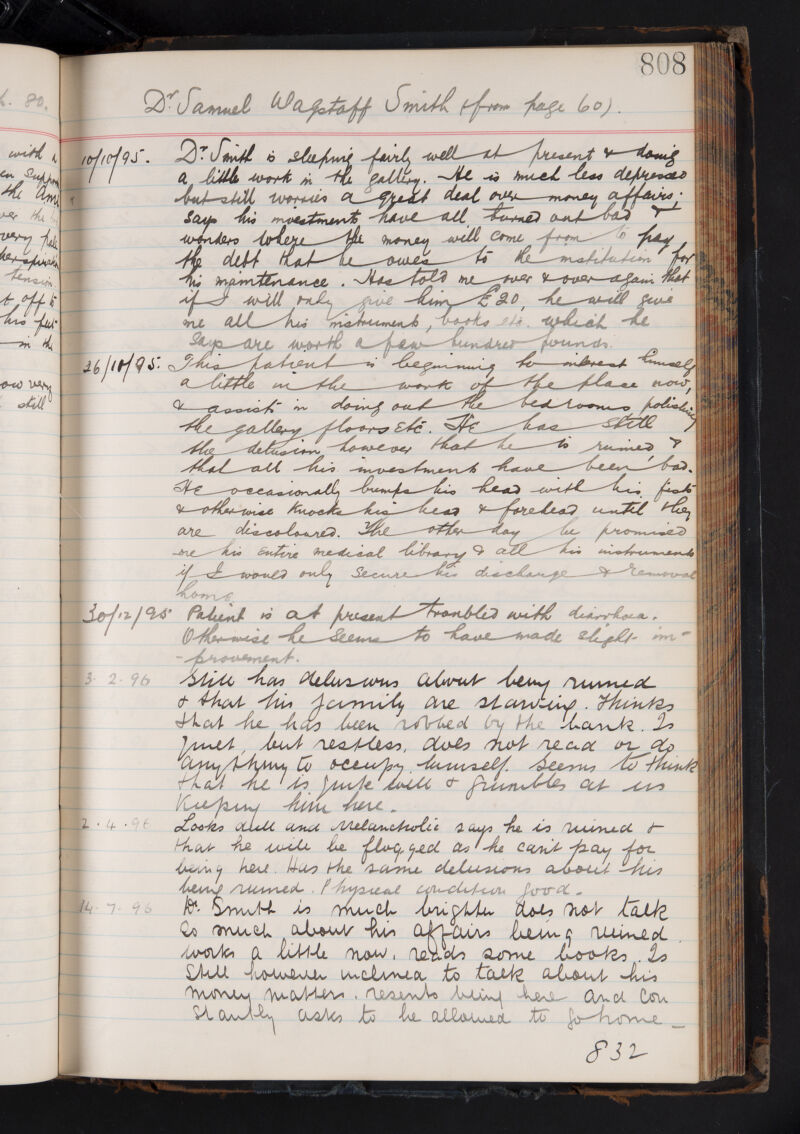 808
h. 80.
Dr. Samuel Wagstaff Smith (from page 60).
with a
10/10/95. Dr. Smith is sleeping fairly well at present & doing
a little work in the gallery. He is much less depressed
but still worries a great deal over money affairs;
says his investments have all turned out bad &
wonders where the money will come from to pay
the debt that he owes to the institution for
his maintenance. Has told me over & over again that
if I will only give him £20, he will give
me all his instruments, books etc. which he
says are worth a few hundred pounds.
26/10/95. This patient is beginning to interest himself
a little in the work of the place now,
& assists in doing out the bedrooms, polishing
the gallery floors etc. He has still
the delusion, however that he is ruined, &
that all his investments have been bad.
He occasionally bumps his head with his fists
& otherwise knocks his head & forehead until they
are discoloured. The other day he promised
me his entire medical library & all his instruments
if I would only secure his discharge & removal
home.
30/12/95 Patient is at present troubled with diarrhoea.
Otherwise he seems to have made slight im-
-provement.
3. 2. 96 Still has delusions about being ruined
& that his family are starving. Thinks
that he has been robbed by the bank. Is
quiet, but restless, does not read or do
anything to occupy himself. Seems to think
that he is quite well & grumbles at us
keeping him here.
2. 4. 96 Looks dull and melancholic says he is ruined &
that he will be flogged as he cant pay for
being here. Has the same delusions about his
being ruined. Physical condition good.
14. 7. 96 Dr. Smith is much brighter does not talk
so much about his affairs being ruined.
works a little now, reads some books. Is
still however inclined to talk about his
money matters. resents being here and con
stantly asks to be allowed to go home _
832